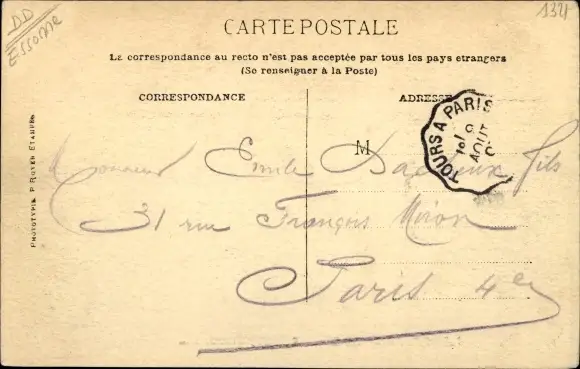 DD
Essonne
1321
CARTE POSTALE
La correspondance au recto n'est pas acceptée par tous les pays etrangers
(Se renseigner à la Poste)
CORRESPONDANCE
ADRESSE
TOURS A PARIS
9
AOUT
M
Monsieur Emile fils
31 rue François Miron
Paris 4e
PHOTOTYPIE P. ROYER ETAMPES